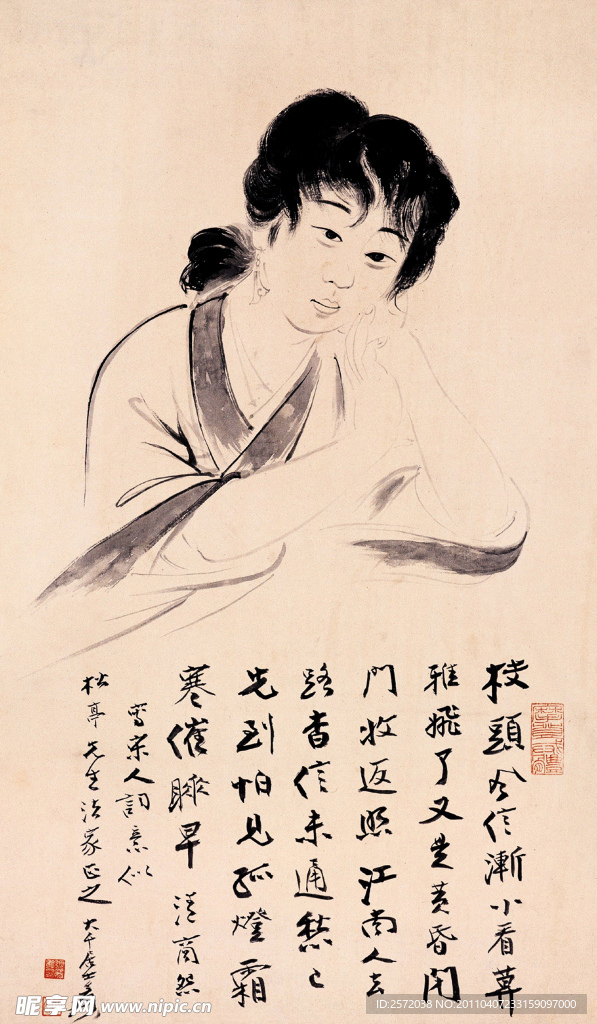 枝頭風信漸小看暮
雅飛了又是黃昏閉
門收返照江南人去
路杳信未通愁已
先到怕見孤燈霜
寒催睡早 清商怨
寫宋人詞意似
松亭先生法家正之 大千居士爰
昵享网 www.nipic.cn
ID:2572038 NO:20110407233159097000